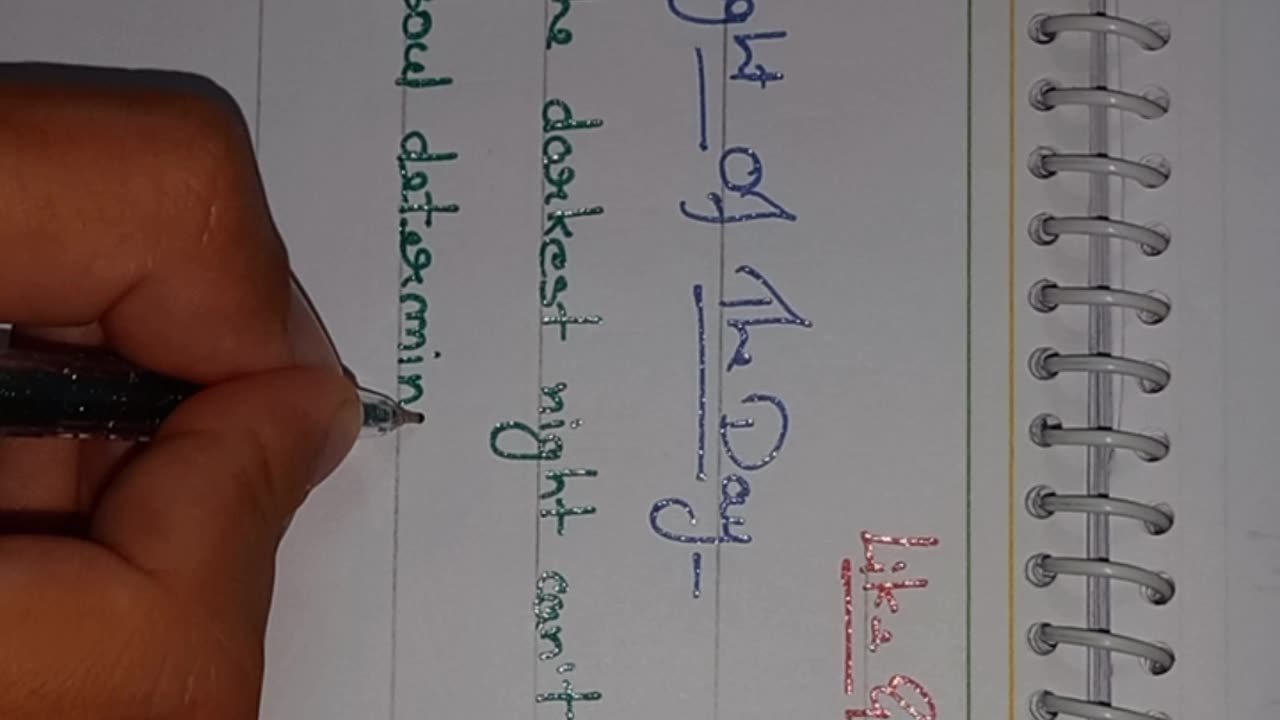 Like
ght Of The Day
he darkest night can't
soul determin